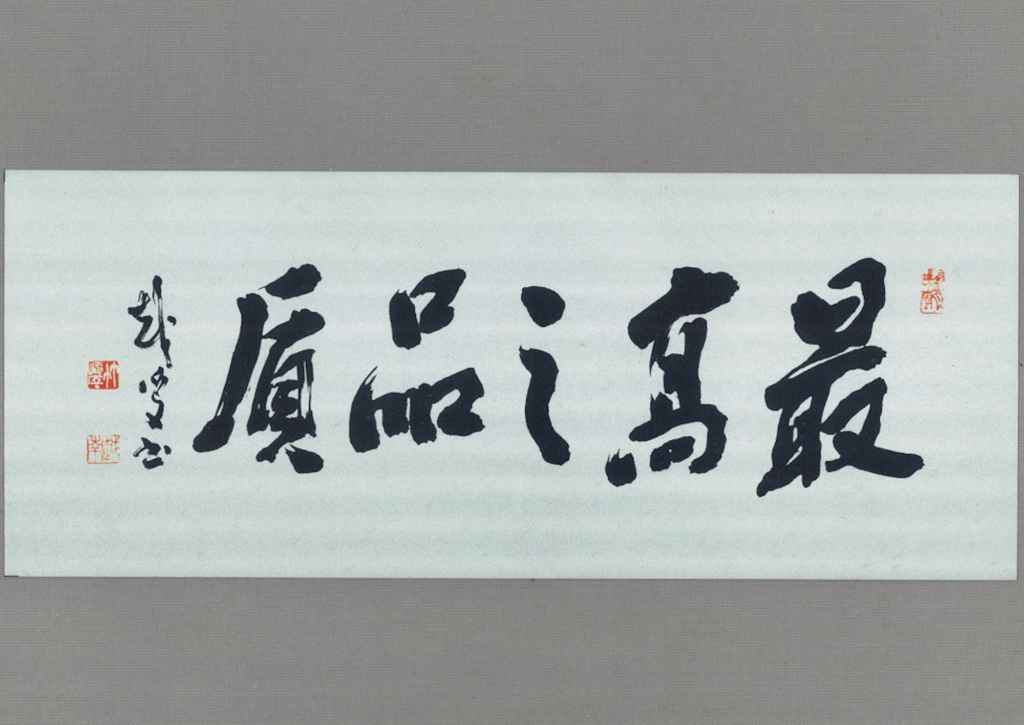 最高之品质